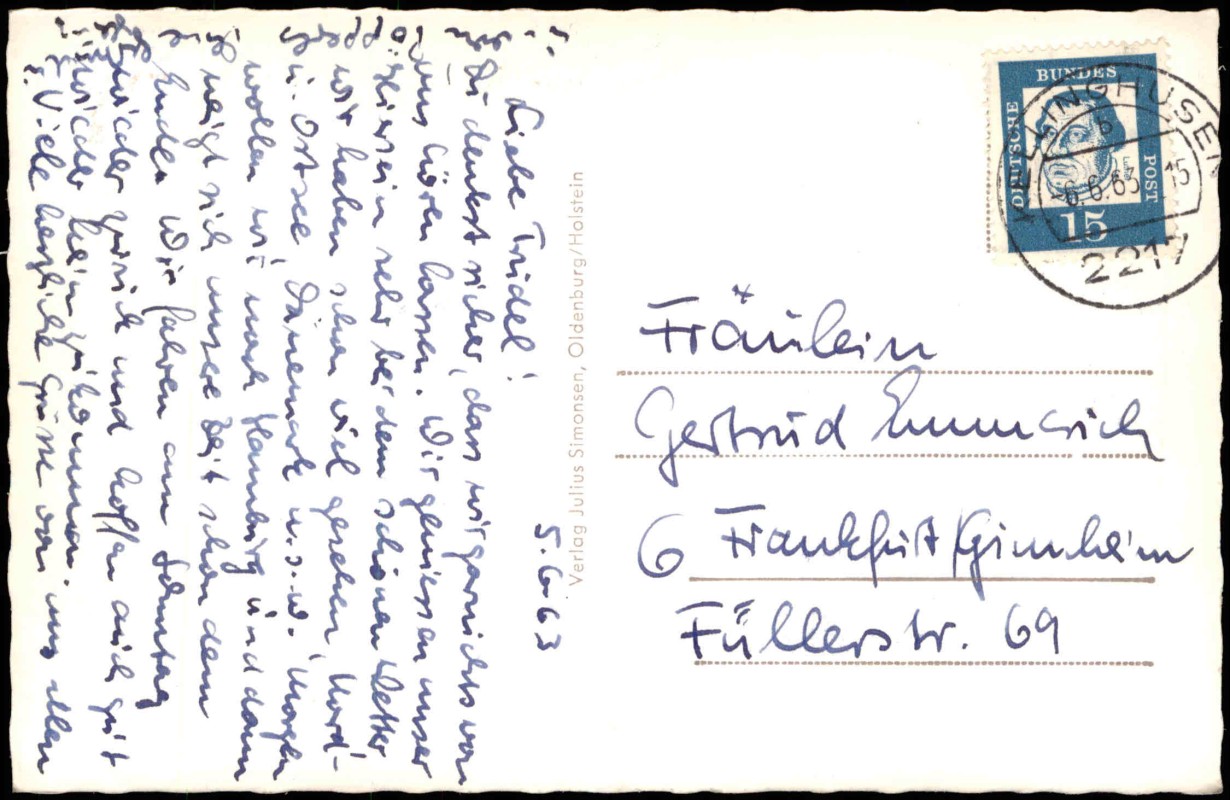 5.6.63
Liebe Fridel!
Du denkst sicher, dass wir garnichts von
uns hören lassen. Wir geniessen unser
hiersein sehr bei dem schönen Wetter
wir haben schon viel gesehen, Nord-
u. Ostsee, Dänemark u.s.w. Morgen
wollen wir nach Hamburg und dann
neigt sich unsere Zeit schon dem
Ende. Wir fahren am Samstag
wieder zurück und hoffen auch gut
wieder heimzukommen.
Viele herzliche Grüsse von uns allen
Verlag Julius Simonsen, Oldenburg/Holstein
DEUTSCHE
BUNDES
POST
15
KELLINGHUSEN
b
-6.6.63 15
2217
Fräulein
Gertrud Emmerich
6 Frankfurt/Ginnheim
Füllerstr. 69